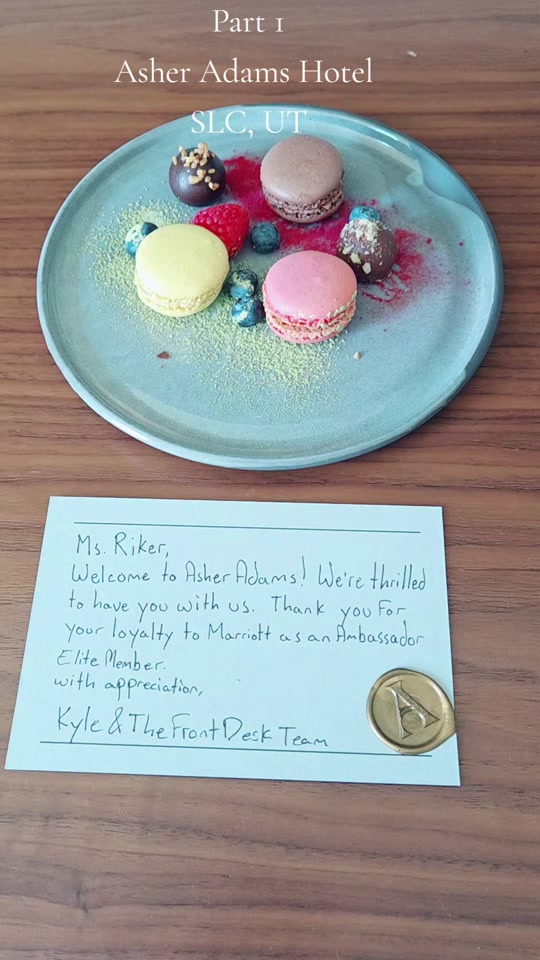 Part 1
Asher Adams Hotel
SLC, UT
Ms. Riker,
Welcome to Asher Adams! We're thrilled
to have you with us. Thank you For
your loyalty to Marriott as an Ambassador
Elite Member.
with appreciation,
Kyle & The Front Desk Team
A